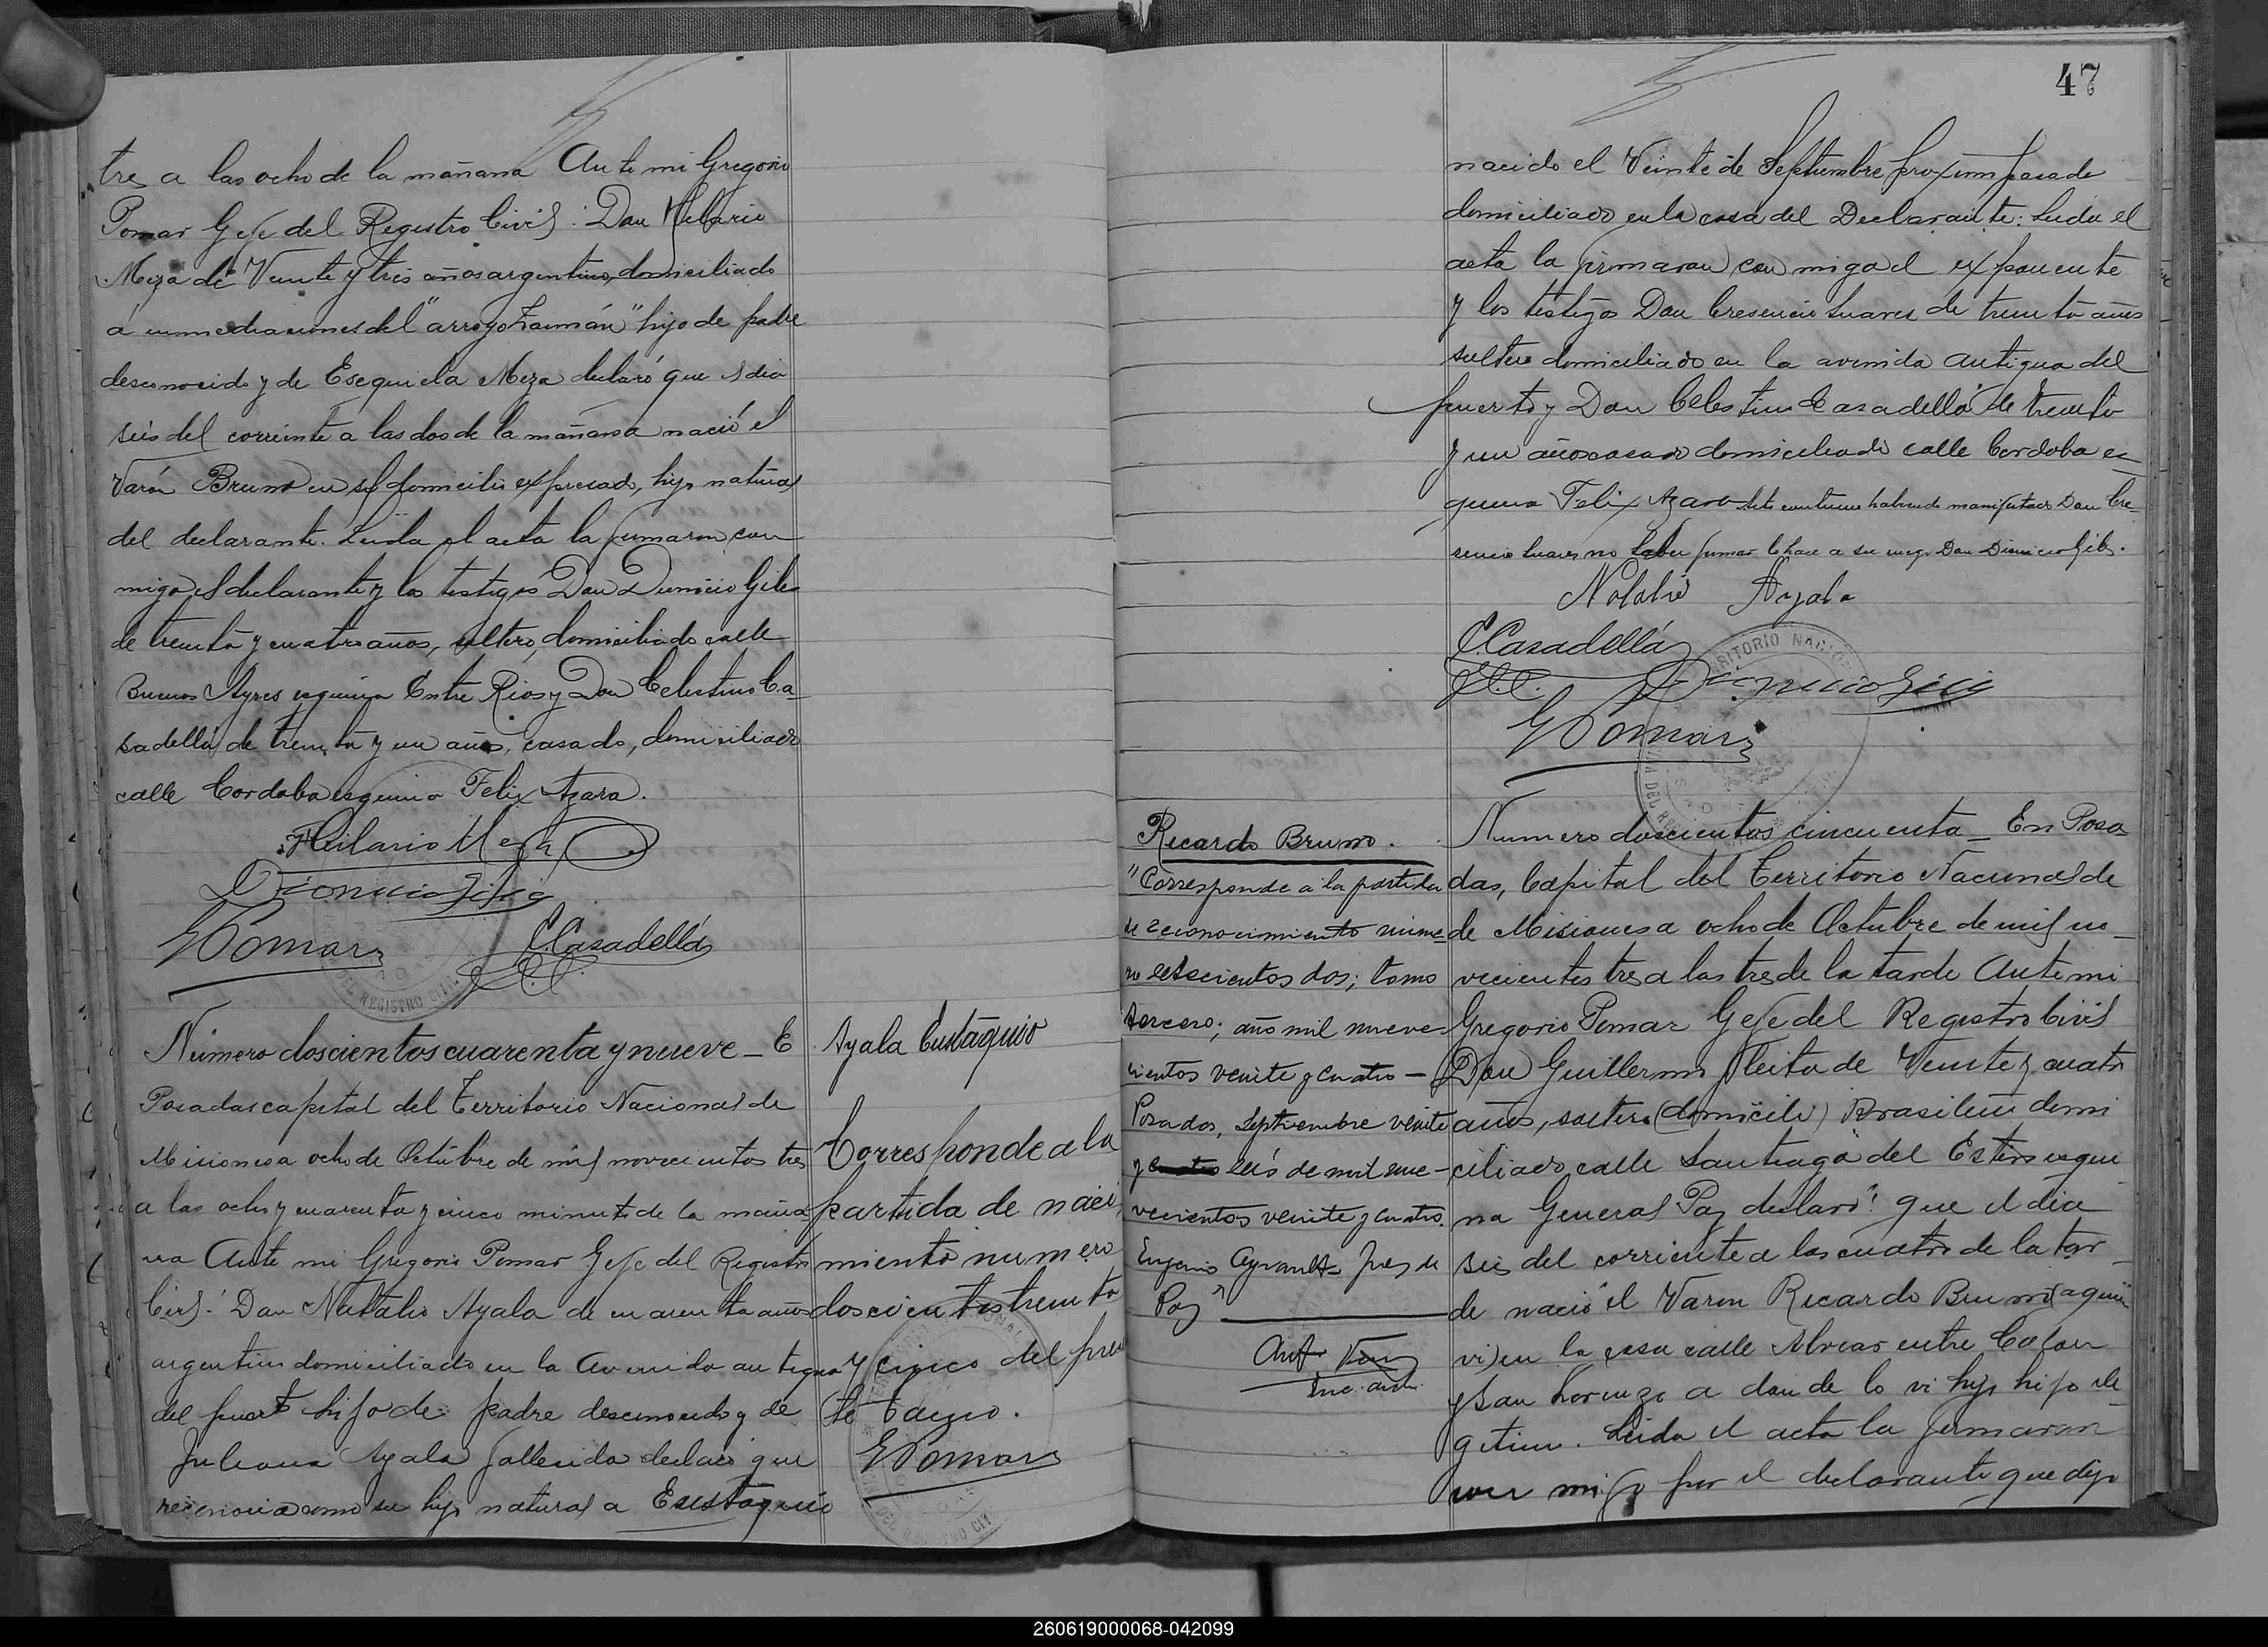 tres a las ocho de la mañana Ante mi Gregorio
Pomar Gefe del Registro Civil: Don Hilario
Meza de Veinte y tres años argentino, domiciliado
á inmediaciones del "arroyo Zaimán" hijo de padre
desconocido y de Esequiela Meza declaró que el dia
seis del corriente a las dos de la mañana nació el
Varón Bruno en su domicilio expresado, hijo natural
del declarante. Leida el acta la firmaron con
migo el declarante y los testigos Don Dionicio Giles
de treinta y cuatro años, soltero, domiciliado calle
Buenos Ayres esquina Entre Rios y Don Celestino Ca-
sadellá de treinta y un años, casado, domiciliado
calle Cordoba esquina Felix Azara.
Hilario Meza
Dionicio Giles
GPomar
C. Casadellá
Número doscientos cuarenta y nueve - E
Posadas capital del Territorio Nacional de
Misiones a ocho de Octubre de mil novecientos tres
a las ocho y cuarenta y cinco minutos de la maña
na Ante mi Gregorio Pomar Gefe del Registro
Civil: Don Natalio Ayala de cuarenta años
argentino domiciliado en la Avenida antigua
del puerto hijo de padre desconocido y de
Juliana Ayala fallecida declaró que
reconocia como su hijo natural a Eustaquio
Ayala Eustaquio
Corresponde a la
partida de naci
miento numero
doscientos treinta
y cinco del presen
te tomo.
GPomar
47
nacido el Veinte de Septiembre proximo pasado
domiciliado en la casa del Declarante: Leida el
acta la firmaron con migo el exponente
y los testigos Don Cresencio Suares de treinta años
soltero domiciliado en la avenida antigua del
puerto y Don Celestino Casadellá de treinta
y un años casado domiciliado calle Cordoba es
quina Felix Azara habiendo manifestado Don Cre
sencio Suares no saber firmar lo hace a su ruego Don Dionicio Giles.
Natalio Ayala
C. Casadellá
Dionicio Giles
GPomar
Ricardo Bruno.
"Corresponde a la partida
de reconocimiento núme-
ro seiscientos dos; tomo
tercero; año mil nueve-
cientos veinte y cuatro -
Posadas, Septiembre veinte
y seis de mil nue-
vecientos veinte y cuatro.
Eugenio Juez de
Paz"
Numero doscientos cincuenta - En Posa
das, Capital del Territorio Nacional de
de Misiones a ocho de Octubre de mil no-
vecientos tres a las tres de la tarde Ante mi
Gregorio Pomar Gefe del Registro Civil
Don Guillermo Fleita de Veinte y cuatro
años, soltero (domicili) Brasilero domi
ciliado calle Santiago del Estero esqui
na General Paz declaró: que el dia
seis del corriente a las cuatro de la tar-
de nació el Varon Ricardo Bruno (aquien
vi) en la casa calle Alvear entre Colon
y San Lorenzo a donde lo vi hijo hijo ile
gitimo. Leida el acta la firmaron
con migo por el declarante que dijo
260619000068-042099